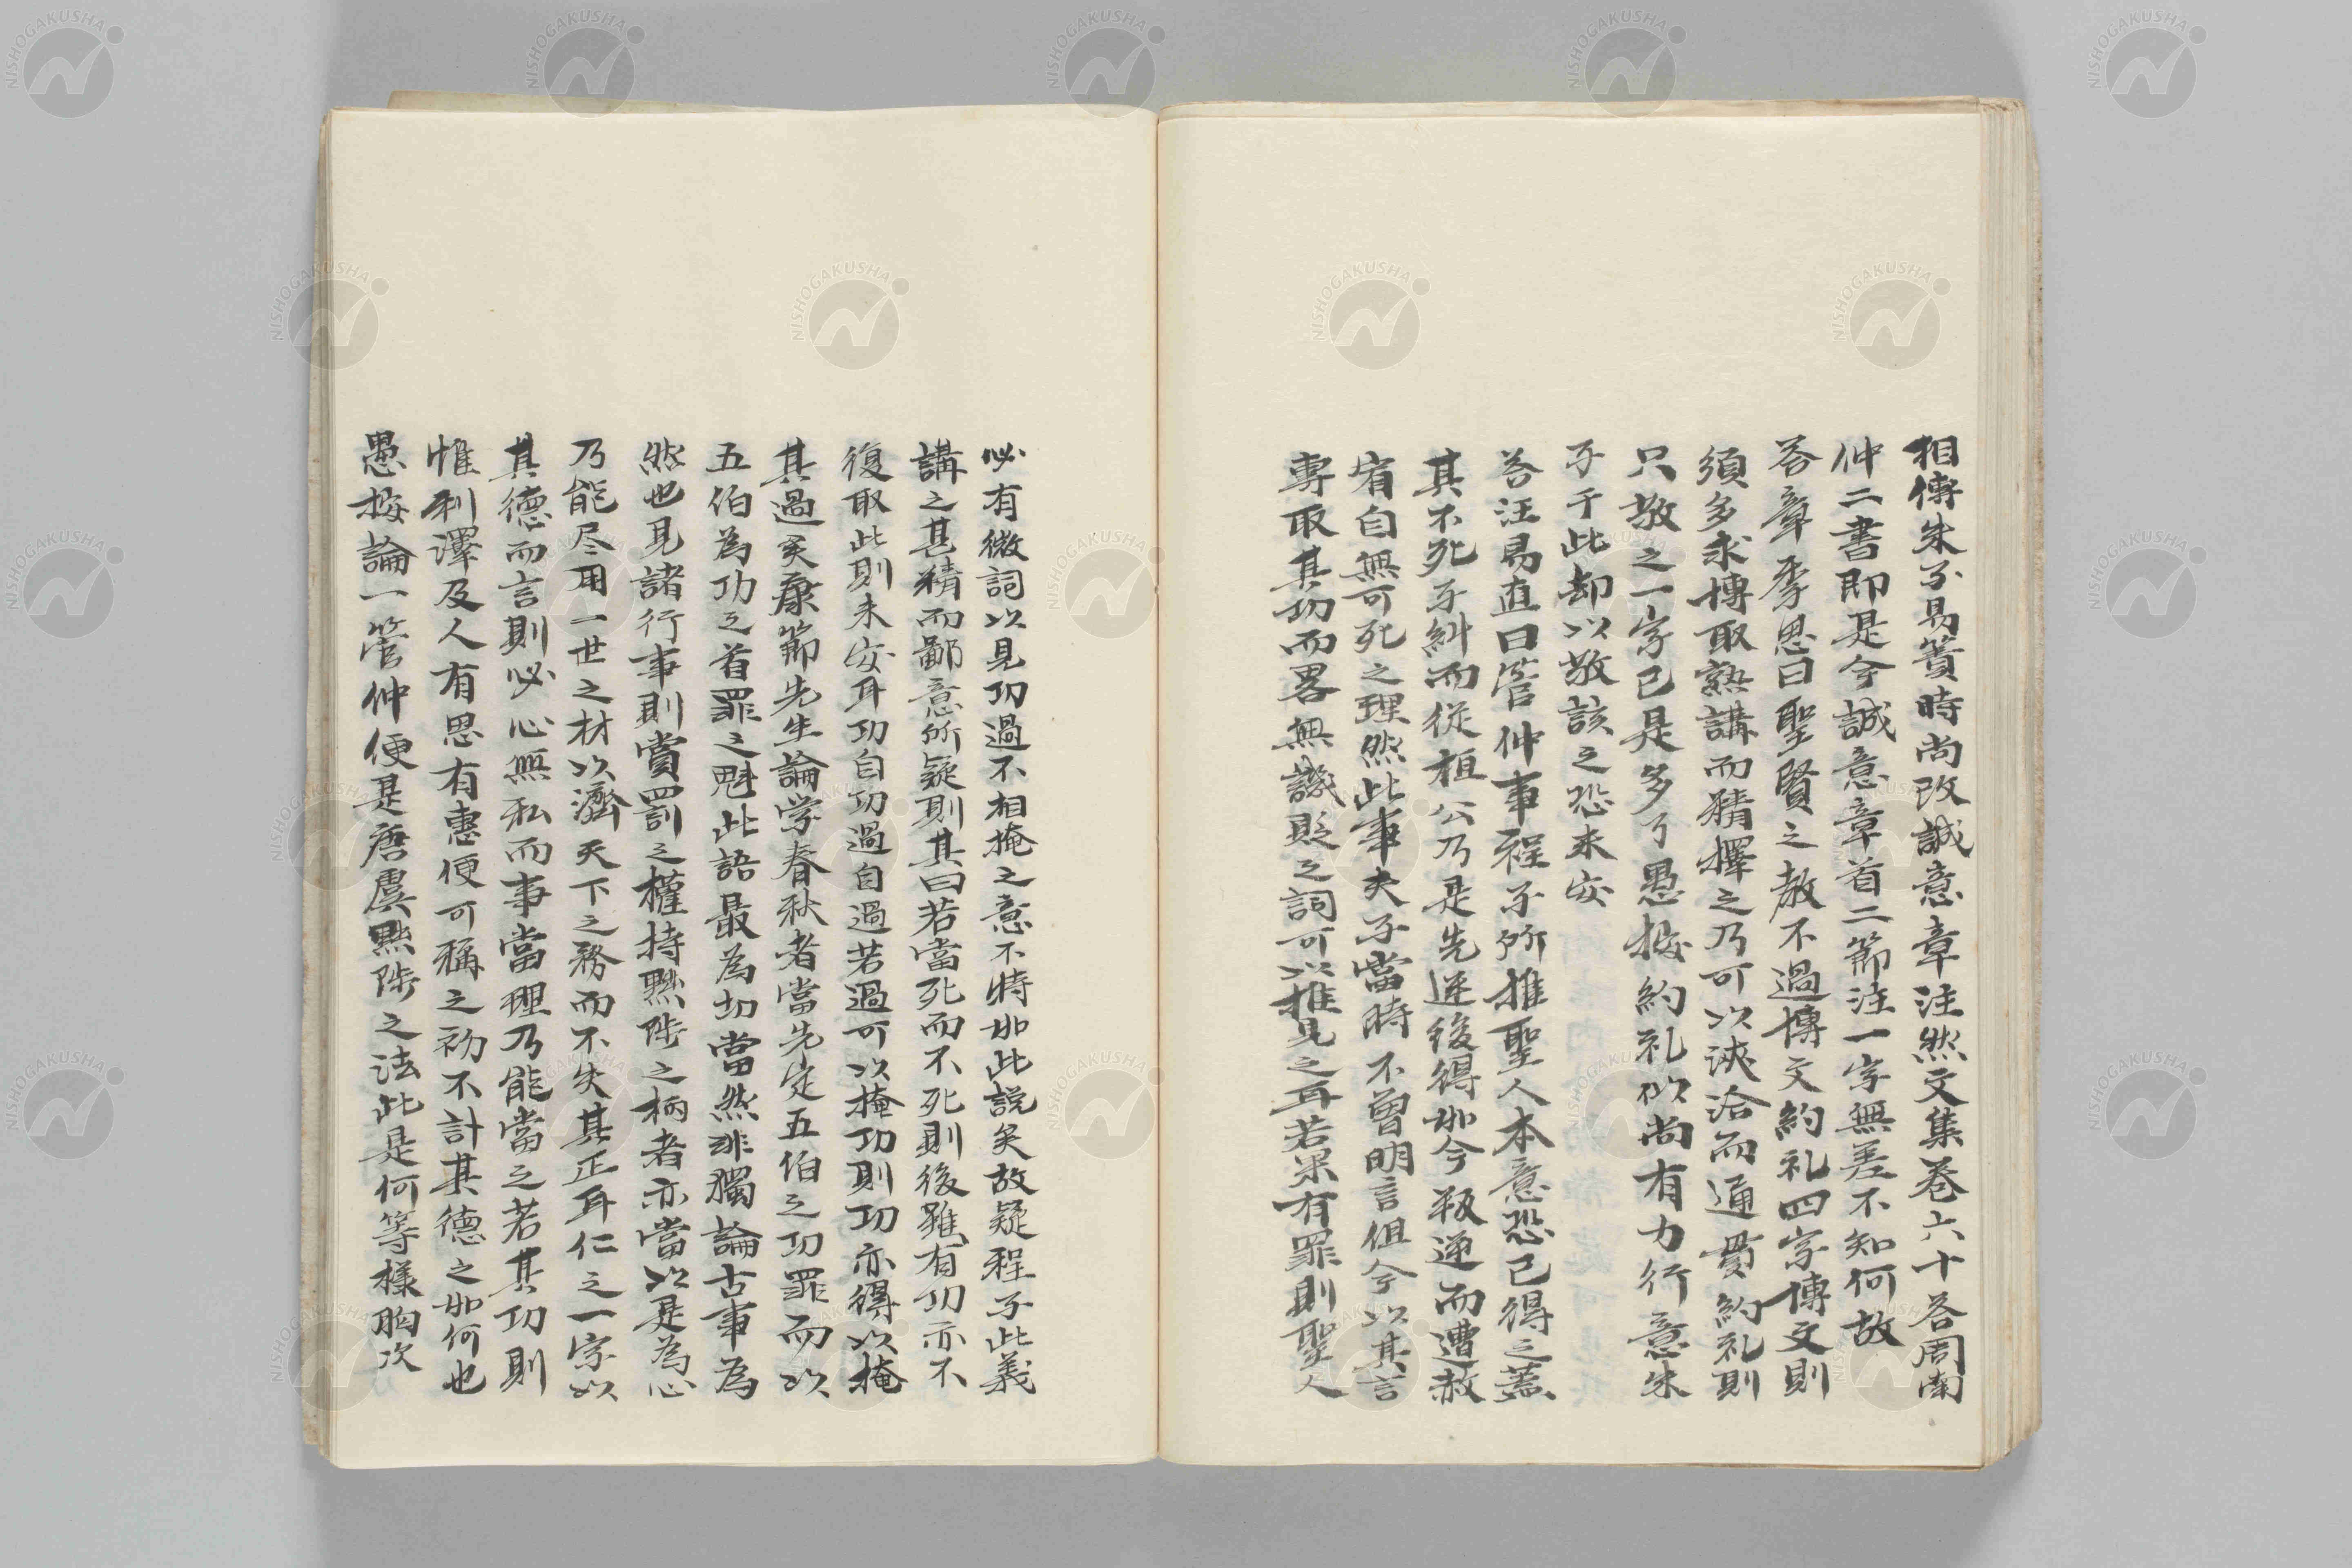 相傳朱子易簀時尚改誠意章注然文集卷六十答周南
仲二書即是今誠意章首二節注一字無差不知何故
答章季思曰聖賢之教不過博文約礼四字博文則
須多求博取熟講而精擇之乃可以浹洽而通貫約礼則
只敬之一字已是多了愚按約礼似尚有力行意朱
子于此却以敬該之恐未安
答汪易直曰管仲事程子所推聖人本意恐已得之蓋
其不死子糾而従桓公乃是先逆後得如今叛逆而遭赦
宥自無可死之理然此事夫子當時不曽明言但今以其言
專取其功而畧無譏貶之詞可以推見之耳若果有罪則聖人
必有微詞以見功過不相掩之意不特如此説矣故疑程子此義
講之甚精而鄙意所疑則其曰若當死而不死則後雖有功亦不
復取此則未安耳功自功過自過若過可以掩功則功亦得以掩
其過矣康節先生論学春秋者當先定五伯之功罪而以
五伯為功之首罪之魁此語最為切當然非獨論古事為
然也見諸行事則賞罰之權持黜陟之柄者亦當以是為心
乃能尽用一世之材以濟天下之務而不失其正耳仁之一字以
其德而言則必心無私而事當理乃能當之若其功則
惟利澤及人有恩有惠便可稱之初不計其德之如何也
愚按論一管仲便是唐虞黜陟之法此是何等様胸次
NISHOGAKUSHA